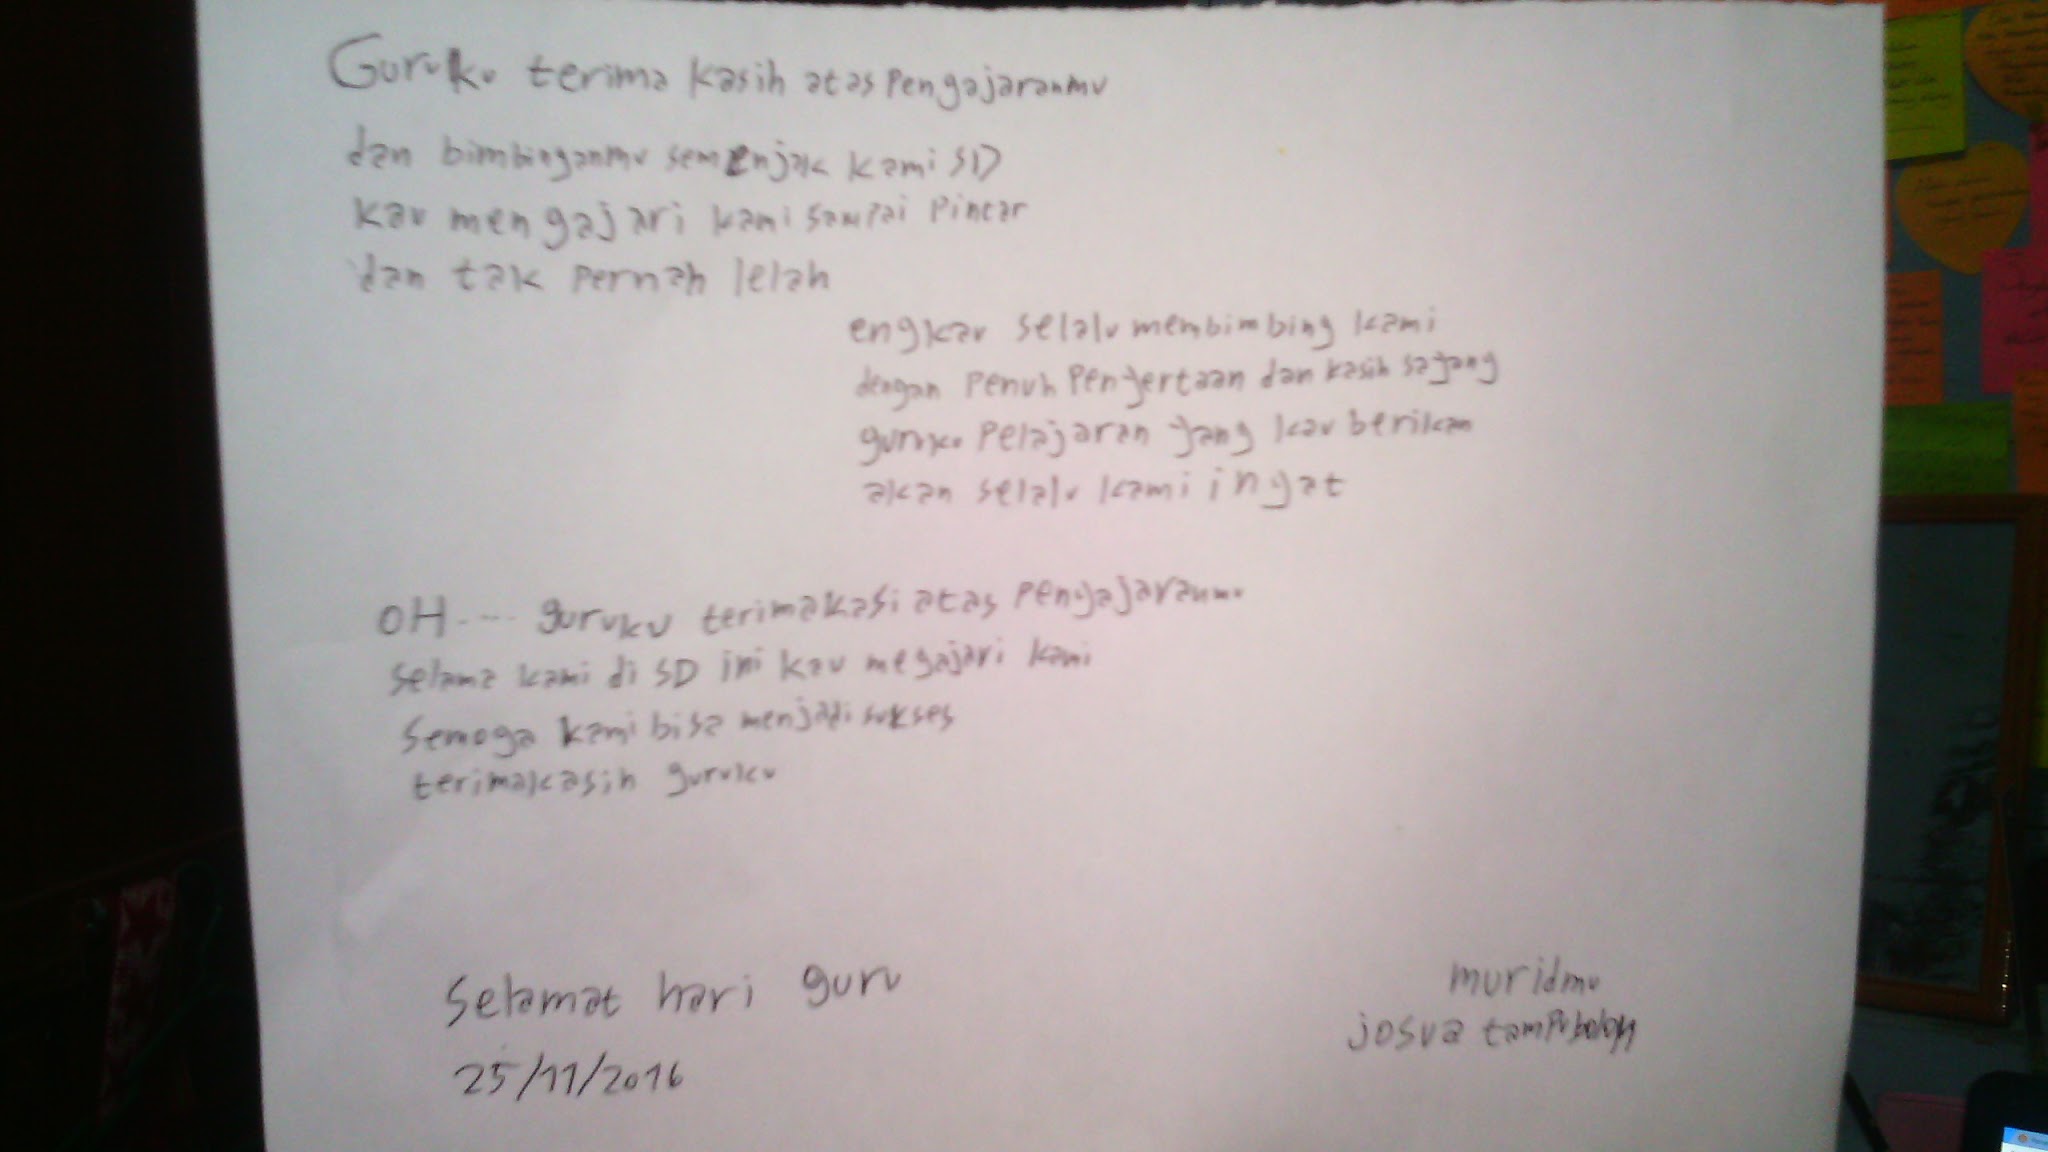 Guruku terima kasih atas pengajaranmu
dan bimbinganmu semenjak kami SD
kau mengajari kami sampai pintar
dan tak pernah lelah
engkau selalu membimbing kami
dengan penuh penyertaan dan kasih sayang
guruku pelajaran yang kau berikan
akan selalu kami ingat
OH.... guruku terimakasi atas pengajaranmu
selama kami di SD ini kau megajari kami
semoga kami bisa menjadi sukses
terimakasih guruku
Selamat hari guru
25/11/2016
muridmu
josua tampubolon